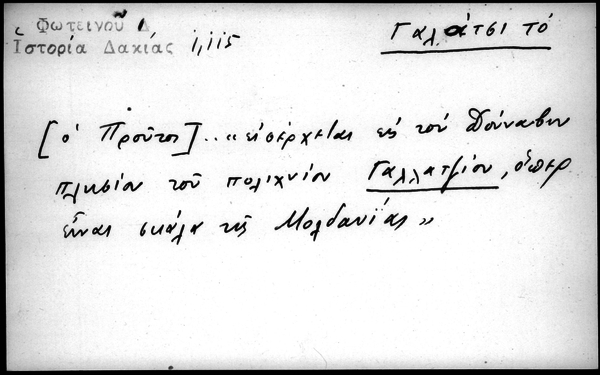 Φωτεινοῦ Δ
Ἱστορία Δακίας 1,115
Γαλάτσι τό
[ὁ Προῦτος].. «εἰσέρχεται εἰς τον Δούναβιν
πλησίον τοῦ πολιχνίον Γαλλατζίον, ὅπερ
εἶναι σκάλα τῆς Μολδαυΐας»